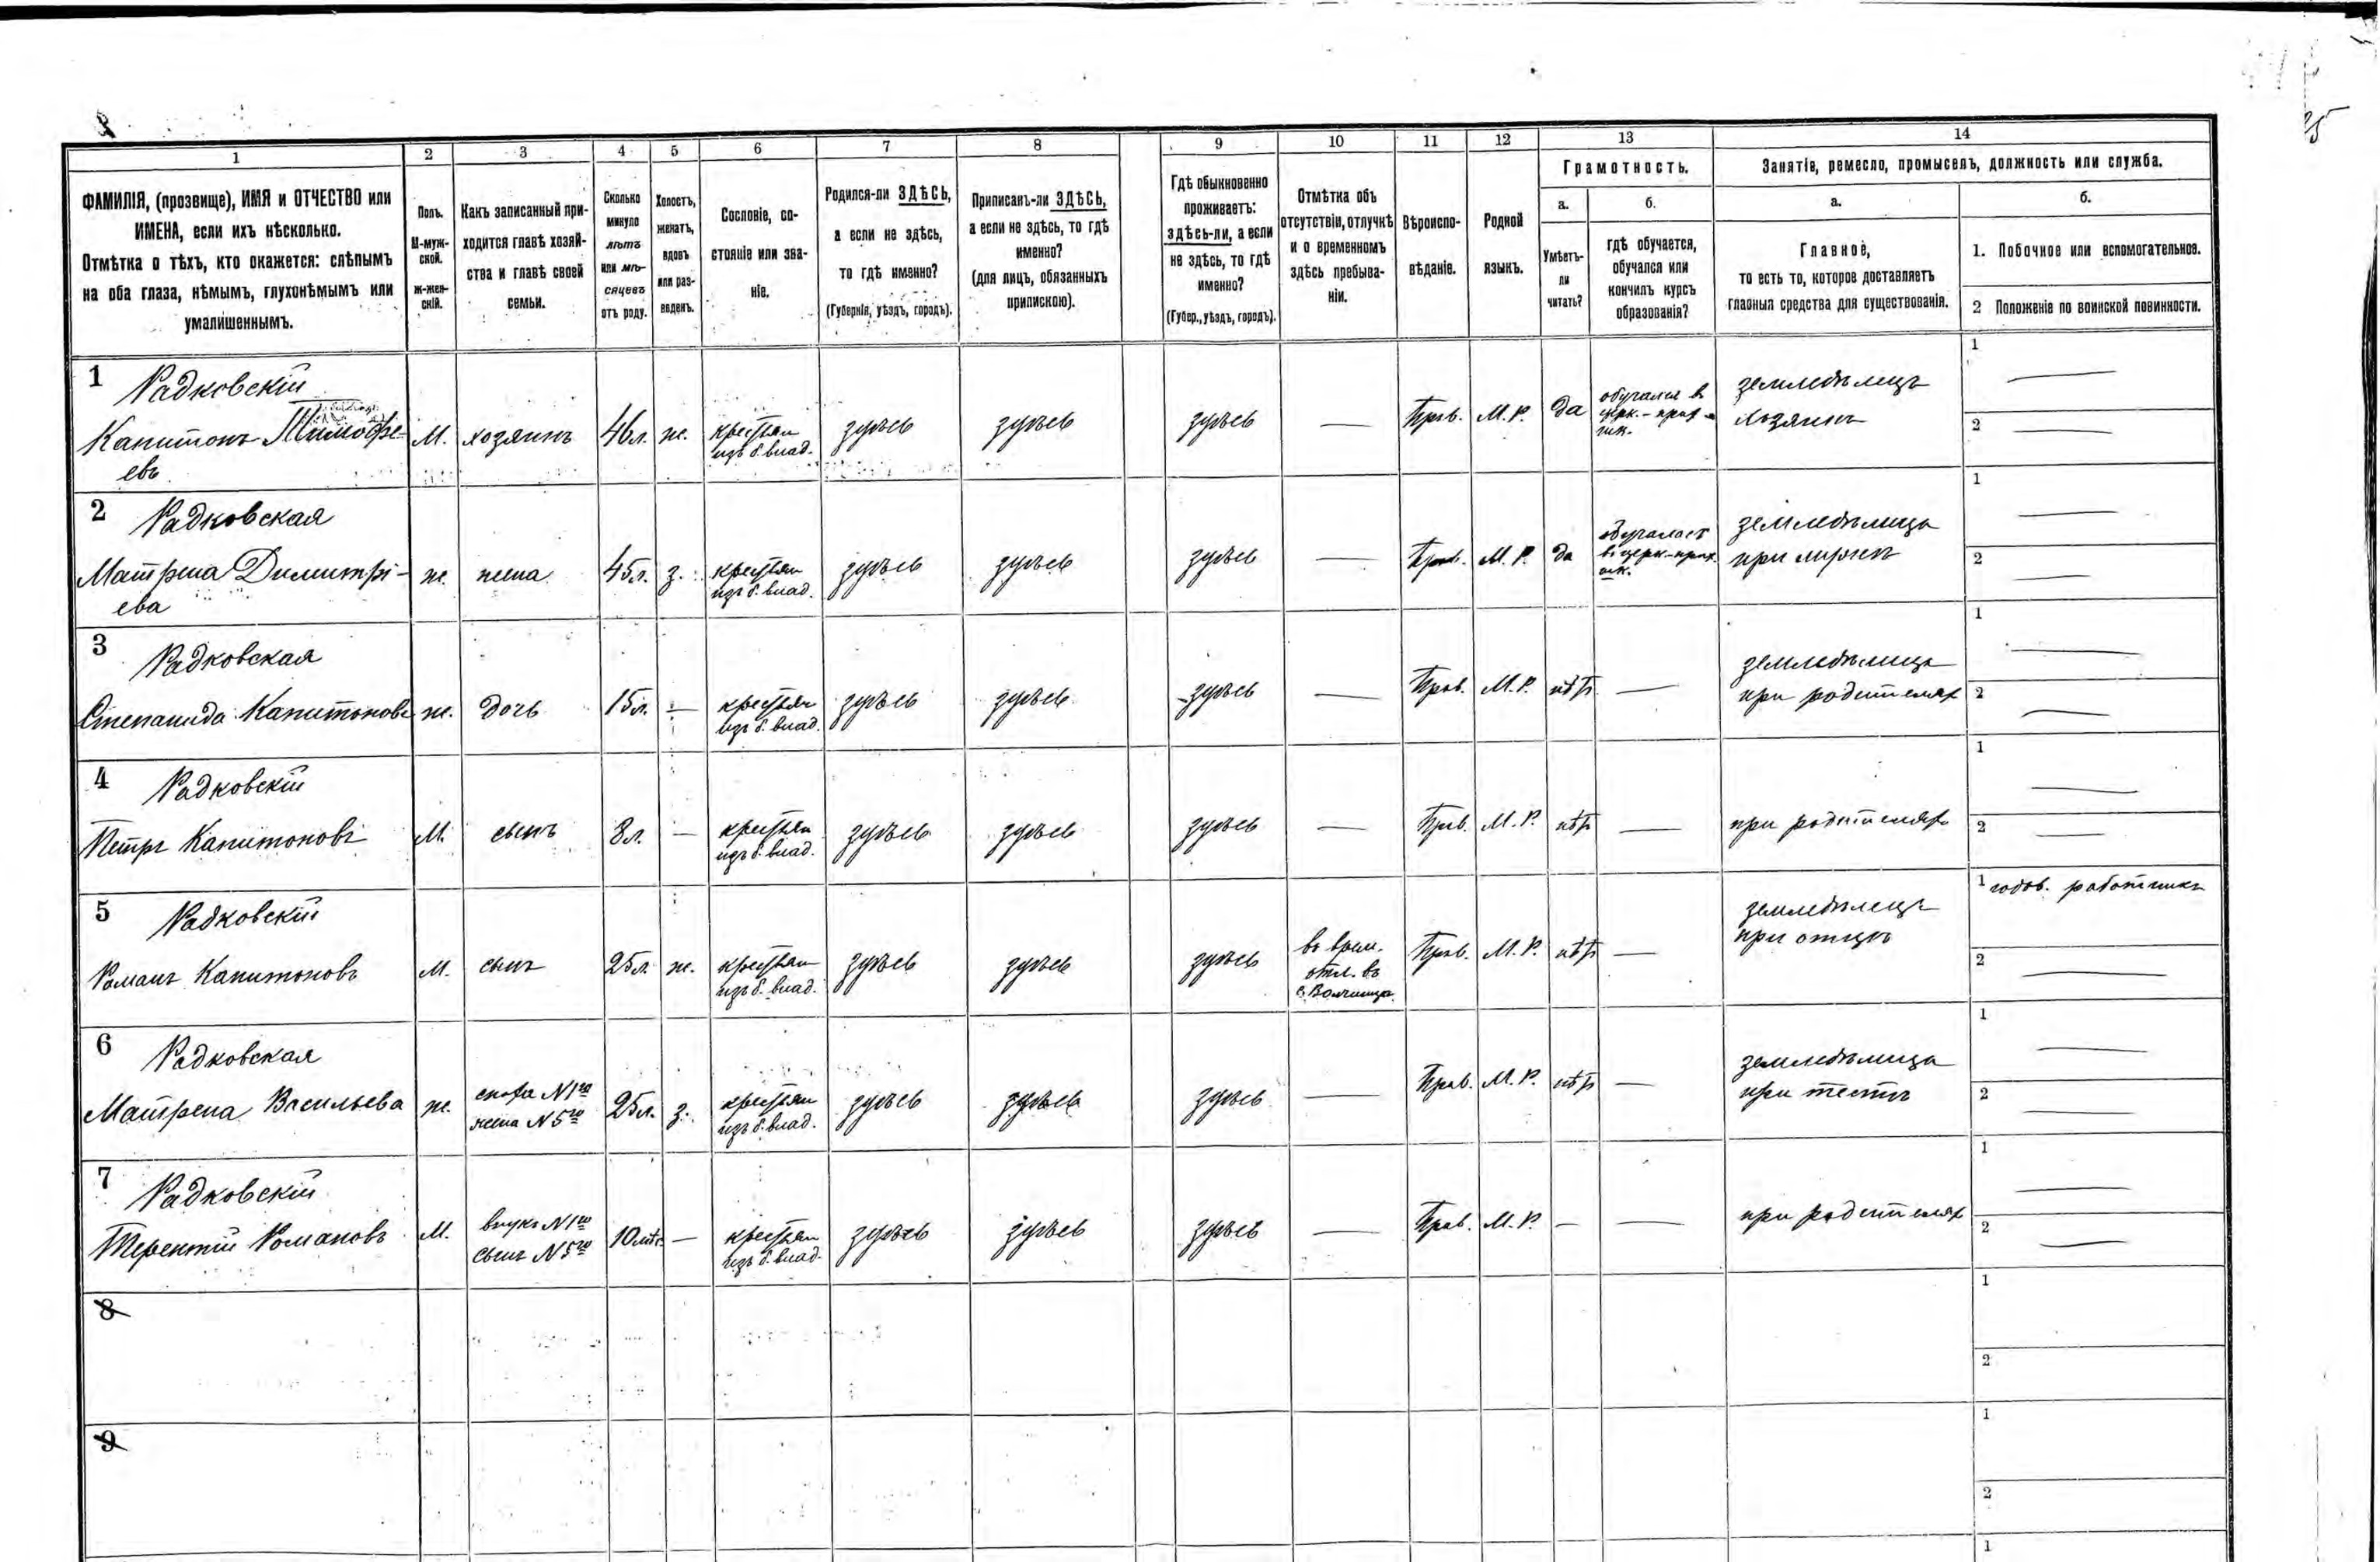 1 2 3 4 5 6 7 8 9 10 11 12 13 14
ФАМИЛІЯ, (прозвище), ИМЯ и ОТЧЕСТВО или
ИМЕНА, если ихъ нѣсколько.
Отмѣтка о тѣхъ, кто окажется: слѣпымъ
на оба глаза, нѣмымъ, глухонѣмымъ или
умалишеннымъ.
Полъ.
М-муж-
ской.
ж-жен-
скій.
Какъ записанный при-
ходится главѣ хозяй-
ства и главѣ своей
семьи.
Сколько
минуло
лѣтъ
или мѣ-
сяцевъ
отъ роду.
Холостъ,
женатъ,
вдовъ
или раз-
веденъ.
Сословіе, со-
стояніе или зва-
ніе.
Родился-ли ЗДѢСЬ,
а если не здѣсь,
то гдѣ именно?
(Губернія, уѣздъ, городъ).
Приписанъ-ли ЗДѢСЬ,
а если не здѣсь, то гдѣ
именно?
(для лицъ, обязанныхъ
припискою).
Гдѣ обыкновенно
проживаетъ:
здѣсь-ли, а если
не здѣсь, то гдѣ
именно?
(Губер., уѣздъ, городъ).
Отмѣтка объ
отсутствіи, отлучкѣ
и о временномъ
здѣсь пребыва-
ніи.
Вѣроиспо-
вѣданіе.
Родной
языкъ.
Грамотность.
а.
Умѣетъ-
ли
читать?
б.
гдѣ обучается,
обучался или
кончилъ курсъ
образованія?
Занятія, ремесло, промыселъ, должность или служба.
а.
Главное,
то есть то, которое доставляетъ
главныя средства для существованія.
б.
1. Побочное или вспомогательное.
2 Положеніе по воинской повинности.
1 Радковскій
Капитонъ Тимофе-
евъ
М. хозяинъ 46 л. ж. крестьян
изъ б. влад.
здѣсь здѣсь здѣсь — Прав. М. Р. да
обучался в
церк.-прих-
шк.
земледѣлецъ
хозяинъ
1 —
2 —
2 Радковская
Матрена Димитрі-
ева
ж. жена 45 л. з. крестьян
изъ б. влад.
здѣсь здѣсь здѣсь — Прав. М. Р. да
обучалась
въ церк.-прих.
шк.
земледѣлица
при мужѣ
1 —
2 —
3 Радковская
Степанида Капитонова
ж. дочь 15 л. — крестьян
изъ б. влад.
здѣсь здѣсь здѣсь — Прав. М. Р. нѣтъ —
земледѣлица
при родителях
1 —
2 —
4 Радковскій
Петръ Капитоновъ
М. сынъ 8 л. — крестьян
изъ б. влад.
здѣсь здѣсь здѣсь — Прав. М. Р. нѣтъ —
при родителях
1 —
2 —
5 Радковскій
Романъ Капитоновъ
М. сынъ 25 л. ж. крестьян
изъ б. влад.
здѣсь здѣсь здѣсь
въ врем.
отл. въ
Прав. М. Р. нѣтъ —
земледѣлецъ
при отцѣ
1 годов. работникъ
2 —
6 Радковская
Матрена Васильева
ж. сноха N 1го
жена N 5го
25 л. з. крестьян
изъ б. влад.
здѣсь здѣсь здѣсь — Прав. М. Р. нѣтъ —
земледѣлица
при тестѣ
1 —
2 —
7 Радковскій
Терентій Романовъ
М. внукъ N 1го
сынъ N 5го
10 мѣс. — крестьян
изъ б. влад.
здѣсь здѣсь здѣсь — Прав. М. Р. — —
при родителях
1 —
2 —
8
1
2
9
1
2
1